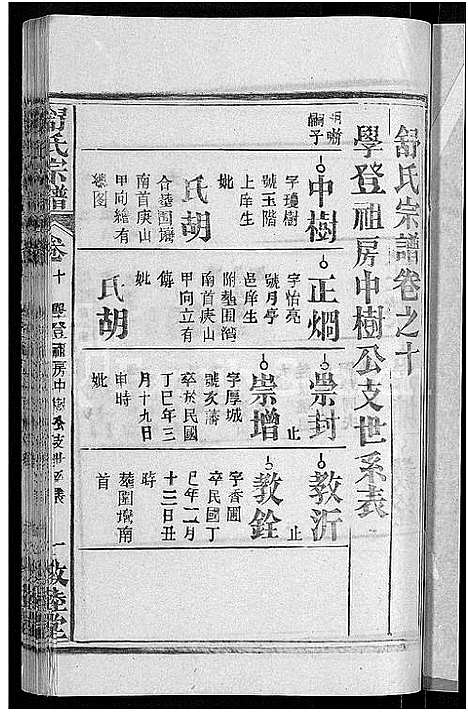 舒氏宗譜卷之十
學登祖房中樹公支世系表
嗣子
中樹
字瓊樹
號玉階
上庠生
妣
胡氏
合塟圍灣
南首庚山
甲向繪有
總图
正烱
字怡亮
號月亭
邑庠生
附塟圍灣
南首庚山
甲向立有
傳
妣
胡氏
崇封
止
崇增
字厚城
號亥藩
卒於民國
丁巳年三
月十九日
申時
妣
教沂
止
教銓
字香圃
卒民國丁
巳年二月
十三日丑
時
塟圍塆南
首
舒氏宗譜
卷十
學登祖房中樹公支世系表
一
敦睦堂